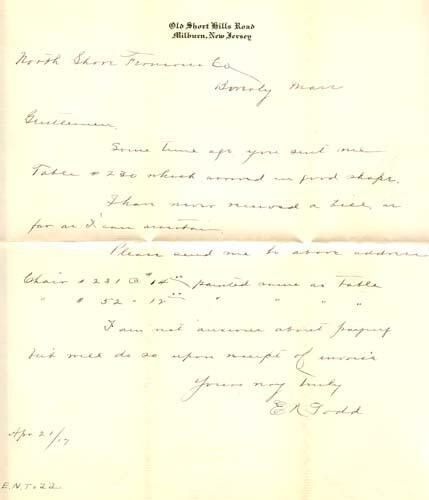 Old Short Hills Road
Milburn, New Jersey
North Shore Ferneries Co
Beverly Mass
Gentlemen,
Some time ago you sent me
Table # 230 which arrived in good shape.
I have never received a bill, as
far as I can ascertain.
Please send me to above address
Chair # 231 @ $14.00 painted same as Table
" # 52 - 12.00 " " " "
I am not anxious about paying
but will do so upon receipt of invoice
Yours very truly
E N Todd
Apr 21/17
E.N.T. 22